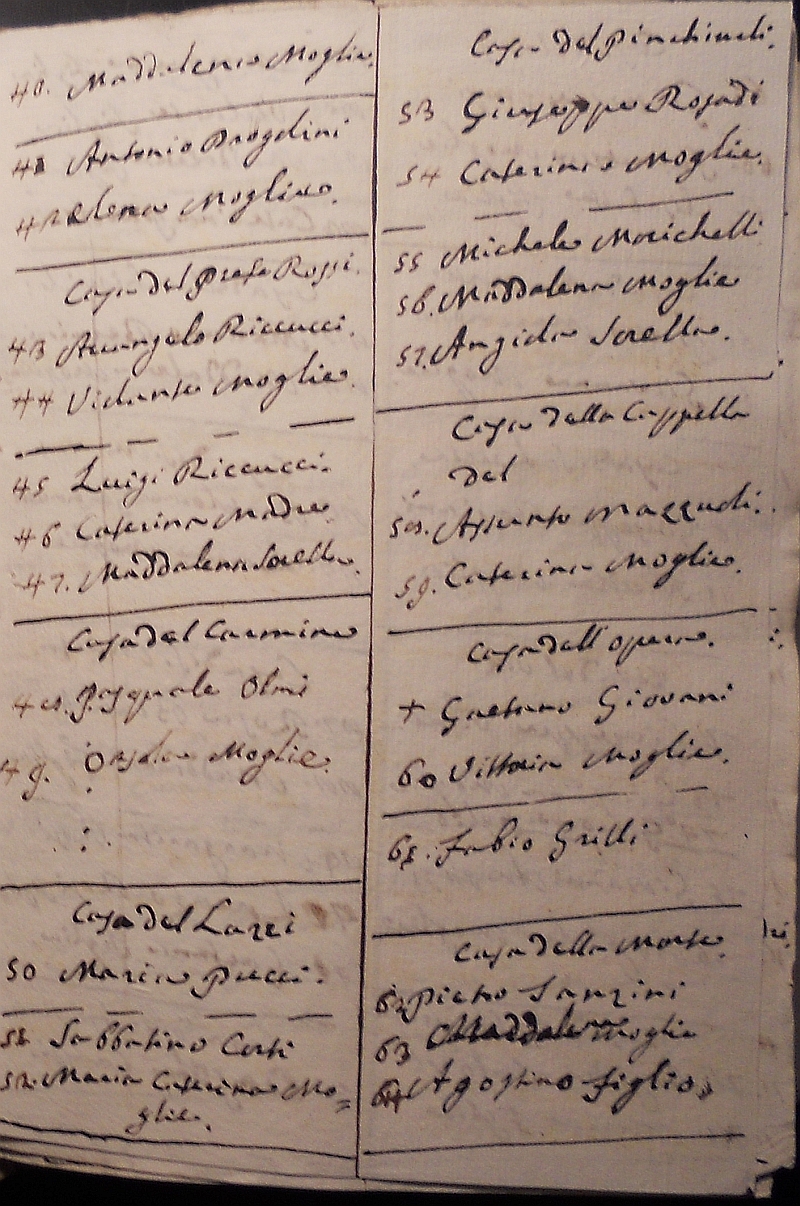 40. Maddalena Moglie.
41 Antonio Brogolini
42 Elena Moglie.
Casa del Prete Rossi.
43 Arcangelo Riccucci.
44 Violante Moglie.
45 Luigi Riccucci.
46 Caterina Madre
47. Maddalena Sorella.
Casa del Carmine
48. Pasquale Olmi
49. Orsola Moglie.
Casa del Lazzi
50 Maria Pucci.
51 Sabbatino Corti
52. Maria Caterina Mo=
glie.
Casa del
53 Giuseppe Rosadi
54 Caterina Moglie.
55 Michele Morichelli
56. Maddalena Moglie
57. Angiola Sorella.
Casa della Cappella
Del
58. Assunto Mazzuoli.
59. Caterina Moglie.
Casa dell'opera.
+ Gaetano Giovani
60 Vittoria Moglie.
61. Fabio Grilli
Casa della Morte.
62 Pietro Sanzini
63 Maddale Moglie
64 Agostino figlio.